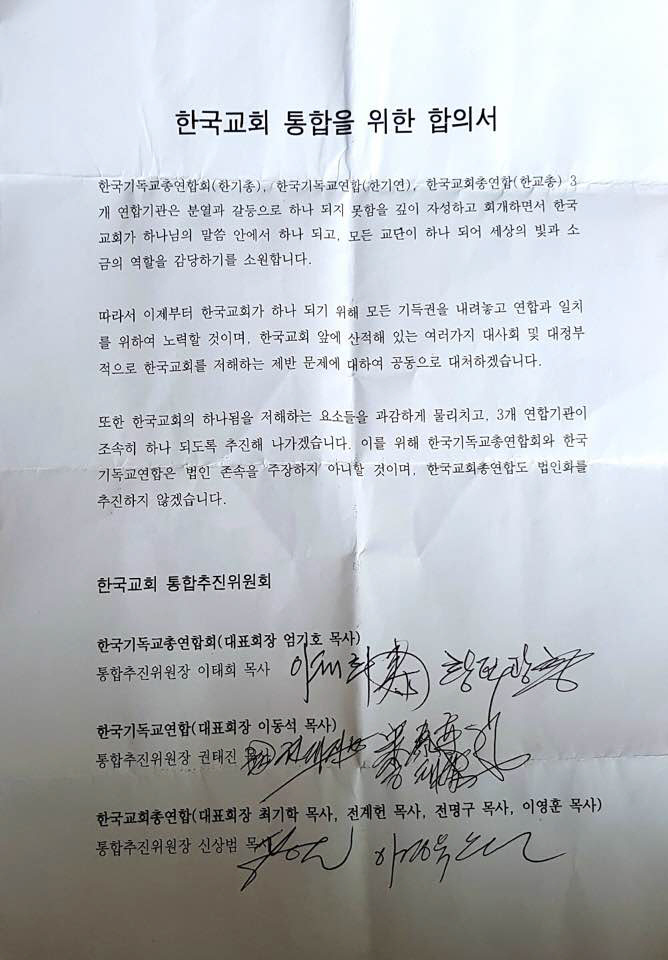 한국교회 통합을 위한 합의서
한국기독교총연합회(한기총), 한국기독교연합(한기연), 한국교회총연합(한교총) 3
개 연합기관은 분열과 갈등으로 하나 되지 못함을 깊이 자성하고 회개하면서 한국
교회가 하나님의 말씀 안에서 하나 되고, 모든 교단이 하나 되어 세상의 빛과 소
금의 역할을 감당하기를 소원합니다.
따라서 이제부터 한국교회가 하나 되기 위해 모든 기득권을 내려놓고 연합과 일치
를 위하여 노력할 것이며, 한국교회 앞에 산적해 있는 여러가지 대사회 및 대정부
적으로 한국교회를 저해하는 제반 문제에 대하여 공동으로 대처하겠습니다.
또한 한국교회의 하나됨을 저해하는 요소들을 과감하게 물리치고, 3개 연합기관이
조속히 하나 되도록 추진해 나가겠습니다. 이를 위해 한국기독교총연합회와 한국
기독교연합은 법인 존속을 주장하지 아니할 것이며, 한국교회총연합도 법인화를
추진하지 않겠습니다.
한국교회 통합추진위원회
한국기독교총연합회(대표회장 엄기호 목사)
통합추진위원장 이태희 목사
한국기독교연합(대표회장 이동석 목사)
통합추진위원장 권태진
한국교회총연합(대표회장 최기학 목사, 전계헌 목사, 전명구 목사, 이영훈 목사)
통합추진위원장 신상범 목사